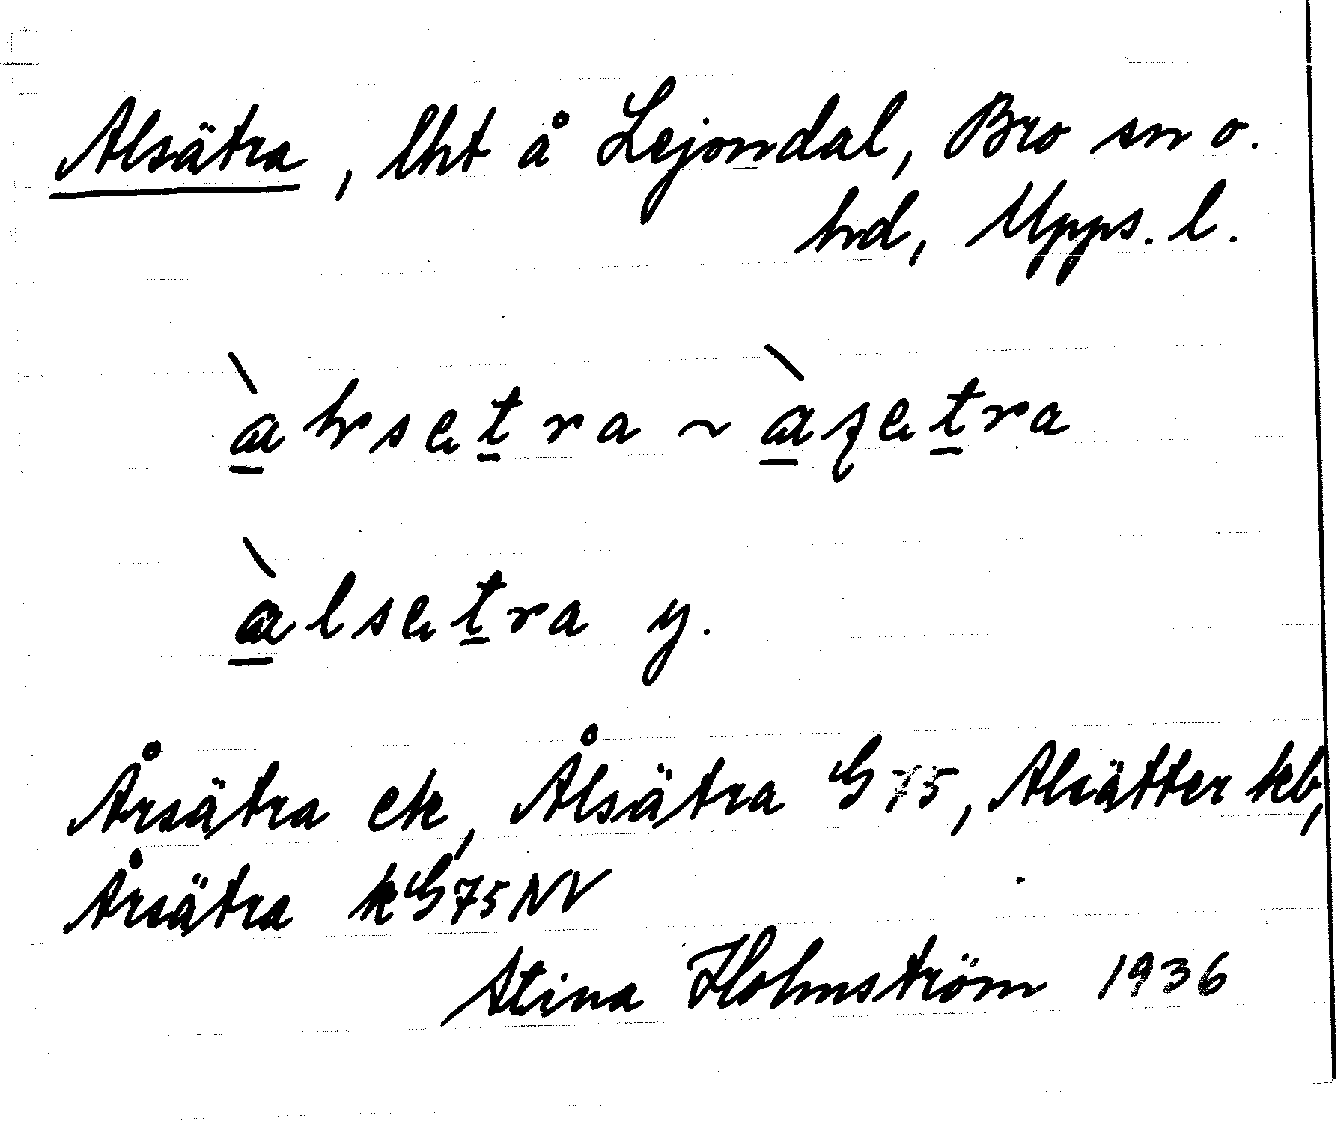 Alsätra, lht å Lejondal, Bro sn o.
hd, Upps. l.
àlsetra ~ àʂetra
àlsetra y.
Årsätra ek, Ålsätra G 75, Alsätter kb,
Årsätra kG75NV
Stina Holmström 1936